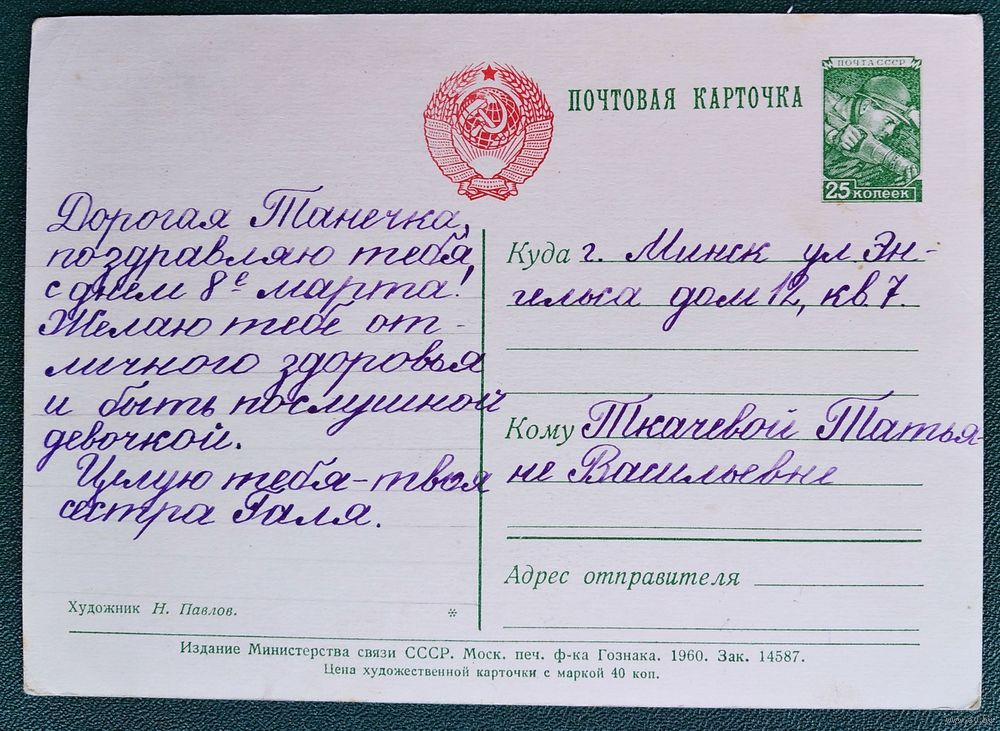 ПОЧТОВАЯ КАРТОЧКА
ПОЧТА СССР
25 КОПЕЕК
Дорогая Танечка,
поздравляю тебя
с днём 8е марта!
Желаю тебе от-
личного здоровья
и быть послушной
девочкой.
Целую тебя - твоя
сестра Галя.
Куда г. Минск ул Эн-
гельса дом 12, кв. 7.
Кому Ткачевой Татья-
не Васильевне
Адрес отправителя
Художник Н. Павлов.
*
Издание Министерства связи СССР. Моск. печ. ф-ка Гознака. 1960. Зак. 14587.
Цена художественной карточки с маркой 40 коп.